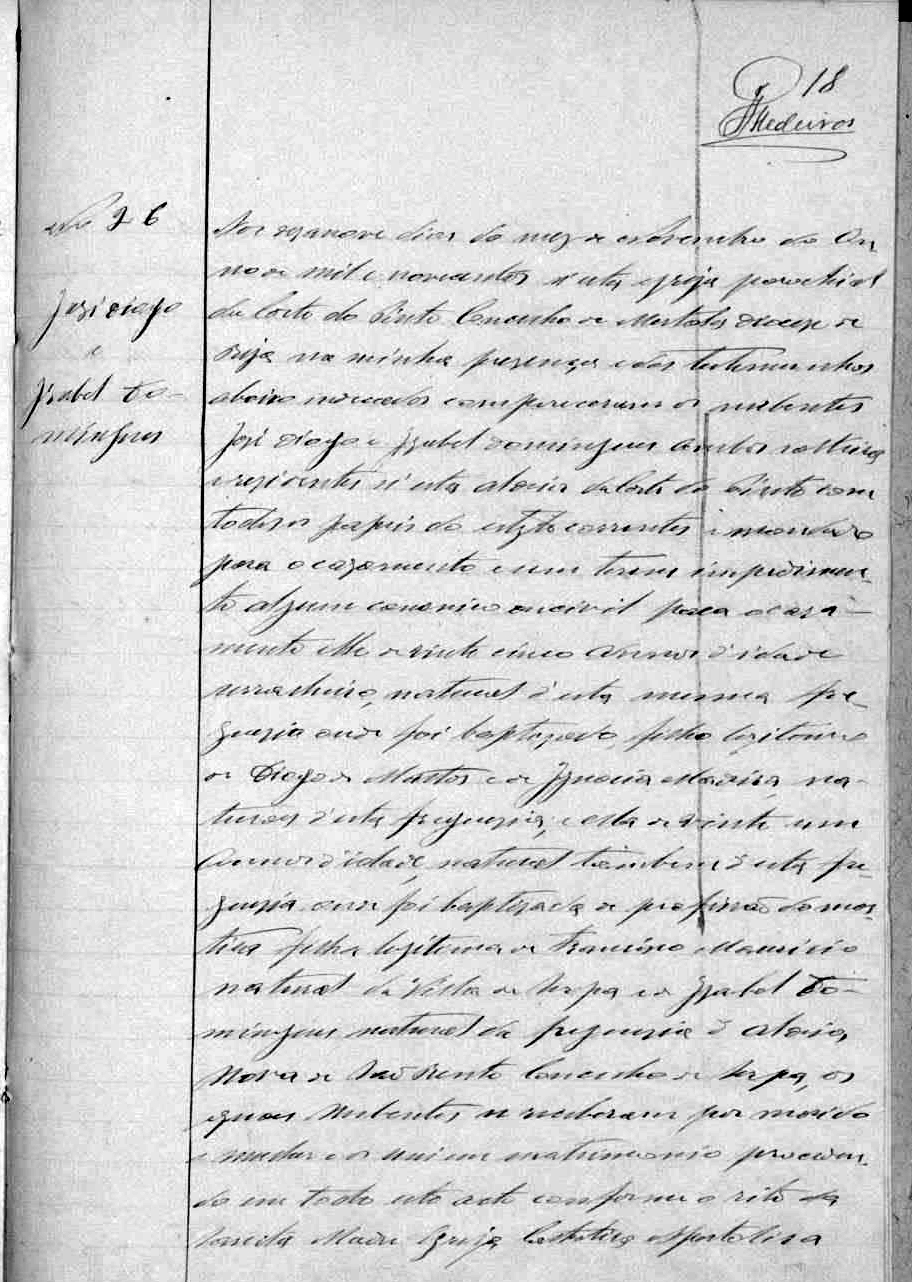 18
Medeiros
No 26
José Diogo
e
Izabel Do-
mingues
Aos dezanove dias do mez de Novembro do An-
no de mil e novecentos n'esta egreja parochial
da Corte do Pinto Concelho de Mertola Diocese de
Beja na minha presença e das testemunhas
abaixo nomeadas compareceram os nubentes
José Diogo e Izabel Domingues ambos solteiros
e residentes n'esta aldeia da Corte do Pinto com
todos os papeis do estylo correntes
para o cazamento e sem terem impedimen-
to algum canonico ou civil para o caza-
mento elle de vinte cinco annos d'idade
natural d'esta mesma fre-
guezia onde foi baptizado, filho legitimo
de Diogo de Mattos e de Ignacia Maria, na-
turaes d'esta freguezia, e ella de vinte um
annos d'idade, natural tambem d'esta fre-
guezia onde foi baptizada de profissão domes-
tica filha legitima de Francisco Mauricio
natural da Villa de Serpa e de Izabel Do-
mingues natural da freguezia d'Aldeia
Nova de São Bento Concelho de Serpa, os
quaes nubentes se receberam por marido
e mulher e os uni em matrimonio proceden-
do em todo este acto conforme o rito da
Santa Madre Egreja Catholica Apostolica